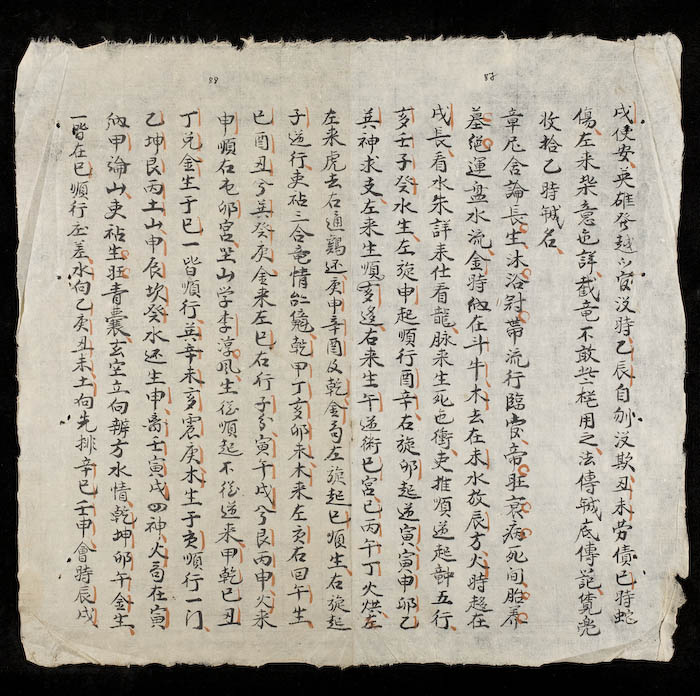 戌使安英雄登越以宜没時乙辰自刎没欺丑未劳債巳時蛇
傷左来柴意迄詳截竜不敢椪用之法傳铖底傳范覺堯
收拾乙時铖名
章尼舍論長生沐浴冠帶流行臨官帝旺衰病死间胎养
墓絕運盘水流金時纳在斗牛木去在未水放辰方火時起在
戌長看水朱詳表仕看龍脉来生死也衝吏推順逆起部五行
亥壬子癸水生左旋申起順行酉辛右旋卯起逆寅寅申卯乙
兵神求支左来生順亥逆右来生午逆術巳宫巳丙午丁火烘左
左来虎去右通鷄还庚申辛酉及乾金局左旋起巳順生右旋起
子逆行吏砧三合竜情乾甲丁亥卯未木来左亥右回午生
巳酉丑兮巽癸庚金来左巳右行子兮寅午戌兮艮丙申火来
申順右屯卯宫坐山学李淳風生從順起不從逆来甲乾巳丑
丁兑金生于巳一皆順行巽辛未亥震庚木生于亥順行一门
乙坤艮丙土山申辰坎癸水还生申离壬寅戌四神火局在寅
纳甲論山吏砧生旺青囊玄空立向辨方水情乾坤卯午金生
一皆在巳順行圣差水向乙庚丑未土向先排辛巳壬申會時辰戌
88
87